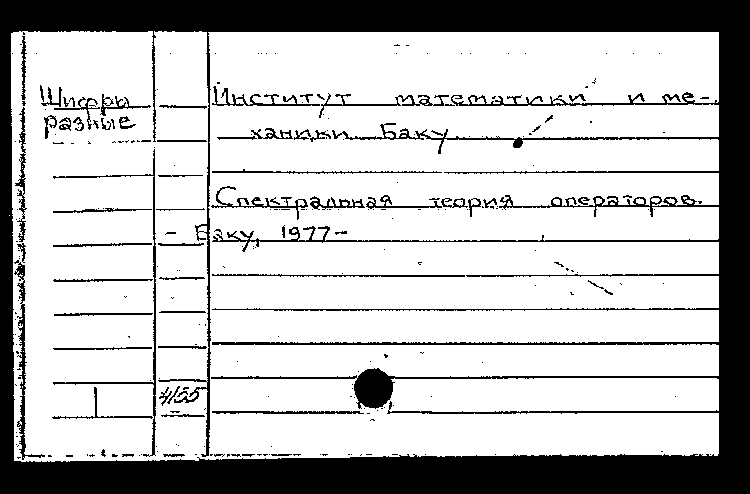 Шифры
разные
Институт математики и ме-
ханики. Баку
Спектральная теория операторов.
- Баку, 1977-
4155